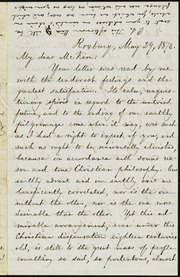 Roxbury, May 29, 1876.
My dear McKim:
Your letter was read by me
with the tenderest feelings and the
greatest satisfaction. Its calm, unques-
tioning spirit in regard to the untried
future, and to the ending of our earthly
pilgrimage one after it may, was just
as I had a right to expect of you; and
such as ought to be universally cherished,
because in accordance with sound reason
and true Christian philosophy. Our
earthly advent and our earthly exit
are beneficently correlated, nor is the one
without the other, nor is the one more
desirable than the other. Yet this ad-
mirable arrangement, even under the
Christian dispensation eighteen centuries
old, is still to the great mass of people
something so sad, so portentous, almost